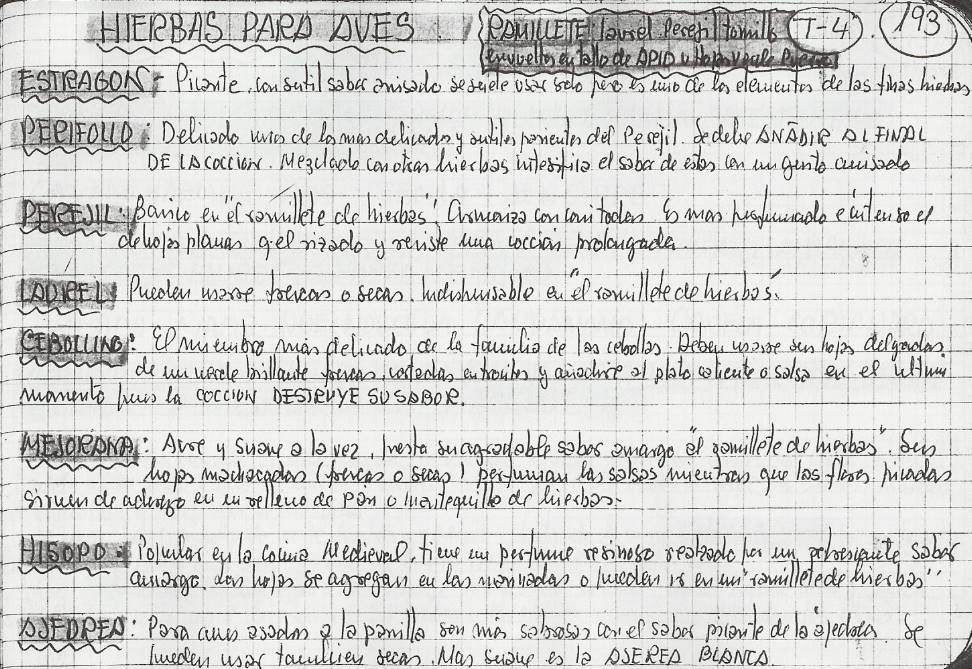 HIERBAS PARA AVES
RAMILLETE laurel Perejil tomillo
envueltos en tallo de APIO u Hojas verde Puerro
T-4
193
ESTRAGON: Picante, con sutil sabor anisado se suele usar solo pero es uno de los elementos de las finas hierbas
PERIFOLLO: Delicado uno de los mas delicados y sutiles parientes del Perejil. Se debe AÑADIR AL FINAL
DE LA COCCION. Mezclado con otras hierbas intensifica el sabor de estas con un gusto anisado
PEREJIL: Basico en "el ramillete de hierbas". Armoniza con casi todas. Es mas perfumado e intenso el
de hojas planas q. el rizado y resiste una cocción prolongada.
LAUREL: Pueden usarse frescas o secas. Indispensable en "el ramillete de hierbas".
CEBOLLINO: El miembro más delicado de la familia de las cebollas. Deben usarse sus hojas delgadas,
de un verde brillante frescas, cortadas en trocitos y añadirse al plato caliente o salsa en el ultimo
momento pues la COCCION DESTRUYE SU SABOR.
MEJORANA: Acre y suave a la vez, presta su agradable sabor amargo "al ramillete de hierbas". Sus
hojas machacadas (frescas o secas) perfuman las salsas mientras que las flores picadas
sirven de aderezo en un relleno de pan o mantequilla de hierbas.
HISOPO: Popular en la cocina Medieval, tiene un perfume resinoso realzado por un sabor
amargo. Las hojas se agregan en las marinadas o pueden ir en un "ramillete de hierbas"
AJEDREA: Para aves asadas a la parrilla son más sabrosas con el sabor picante de la ajedrea. Se
pueden usar tambien secas. Mas suave es la BLANCA.